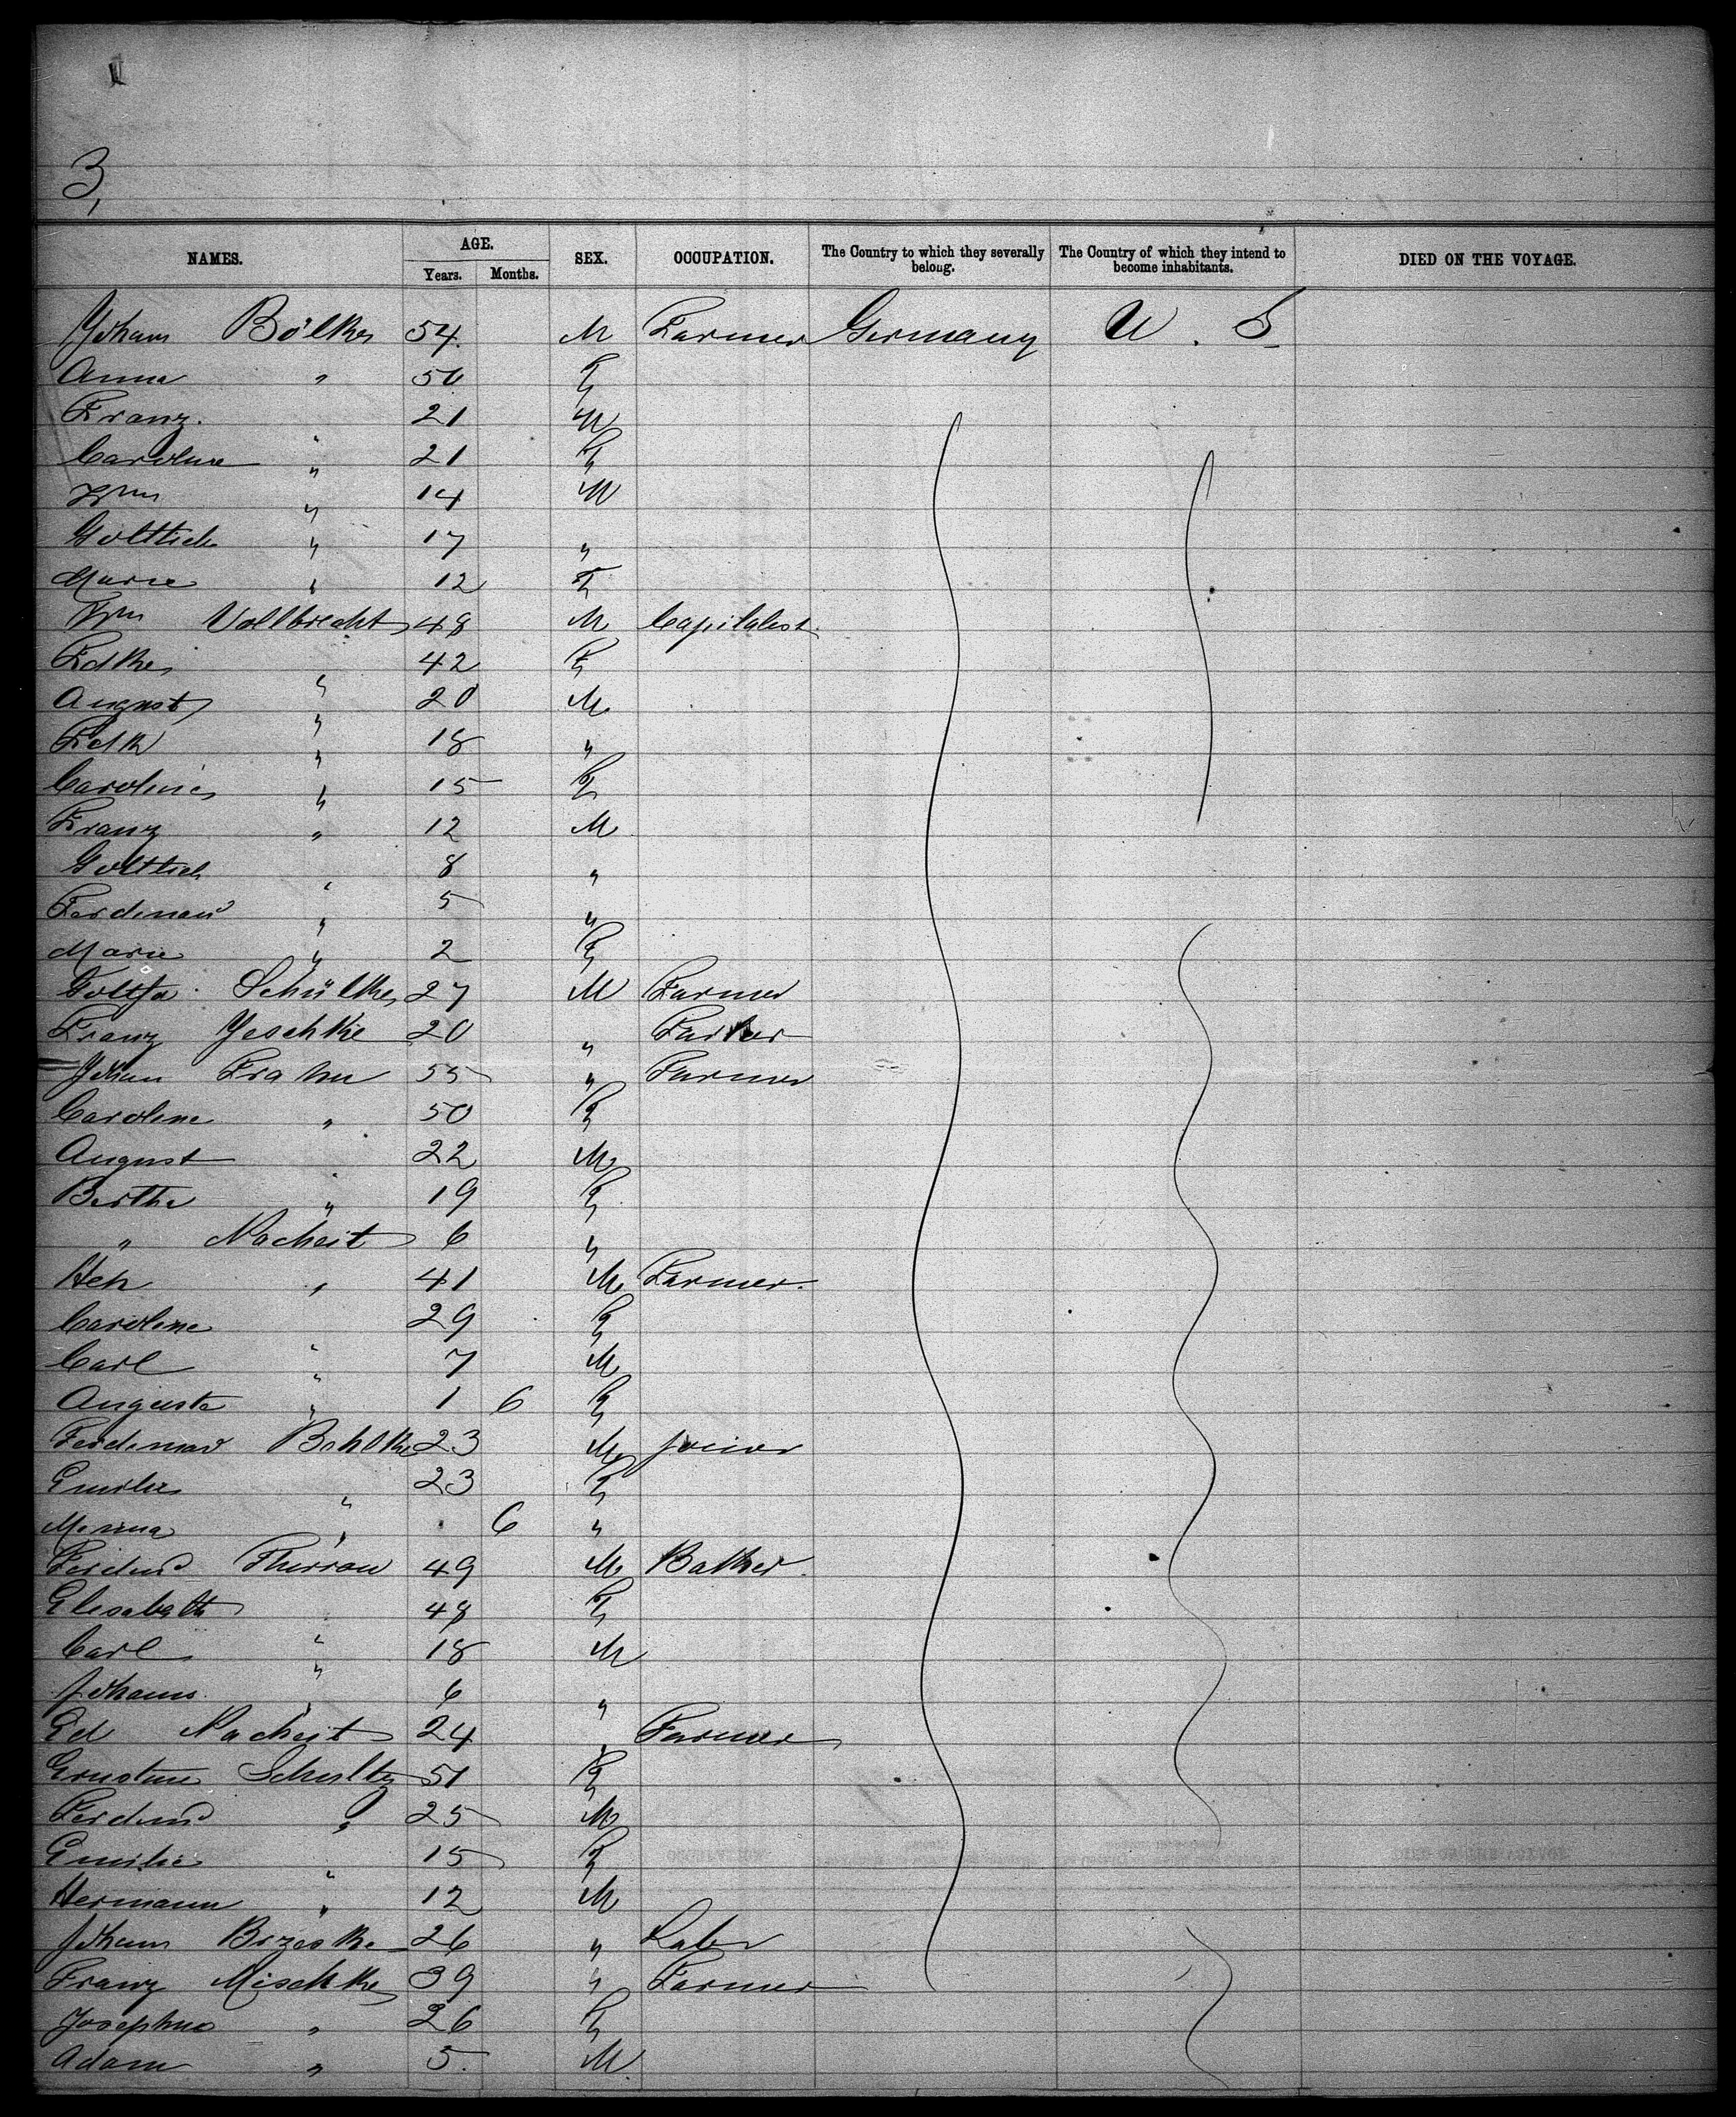 3,
NAMES. AGE. Years. Months. SEX. OCCUPATION. The Country to which they severally belong. The Country of which they intend to become inhabitants. DIED ON THE VOYAGE.
Johann Bölke 54 M Farmer Germany U. S
Anna " 50 F
Franz. " 21 M
Caroline " 21 F
Wm " 14 M
Gottlieb " 17 "
Marie " 12 F
Wm Vollbrecht 48 M Capitalist
Fdke " 42 F
August " 20 M
Fdk " 18 "
Caroline " 15 F
Franz " 12 M
Gottlieb " 8 "
Ferdinand " 5 "
Marie " 2 F
Schülke 27 M Farmer
Franz Jeschke 20 "
Johan Frahm 55 " Farmer
Caroline " 50 F
August " 22 M
Berthe " 19 F
" Nacheit 6 "
Hch " 41 M Farmer.
Caroline " 29 F
Carl " 7 M
Auguste " 1 6 F
Ferdinand Bahlke 23 M joiner
Emilie " 23 F
" 6 "
Ferdind Thurrow 49 M
Elisabeth " 48 F
Carl " 18 M
Johanns " 6 "
Ed Nacheit 24 " Farmer
Ernstine Schultz 51 F
Ferdind " 25 M
Emilie " 15 F
Hermann " 12 M
Johann Brzeske 26 " Labr
Franz Mischke 39 " Farmer
Josephne " 26 F
Adam " 5. M